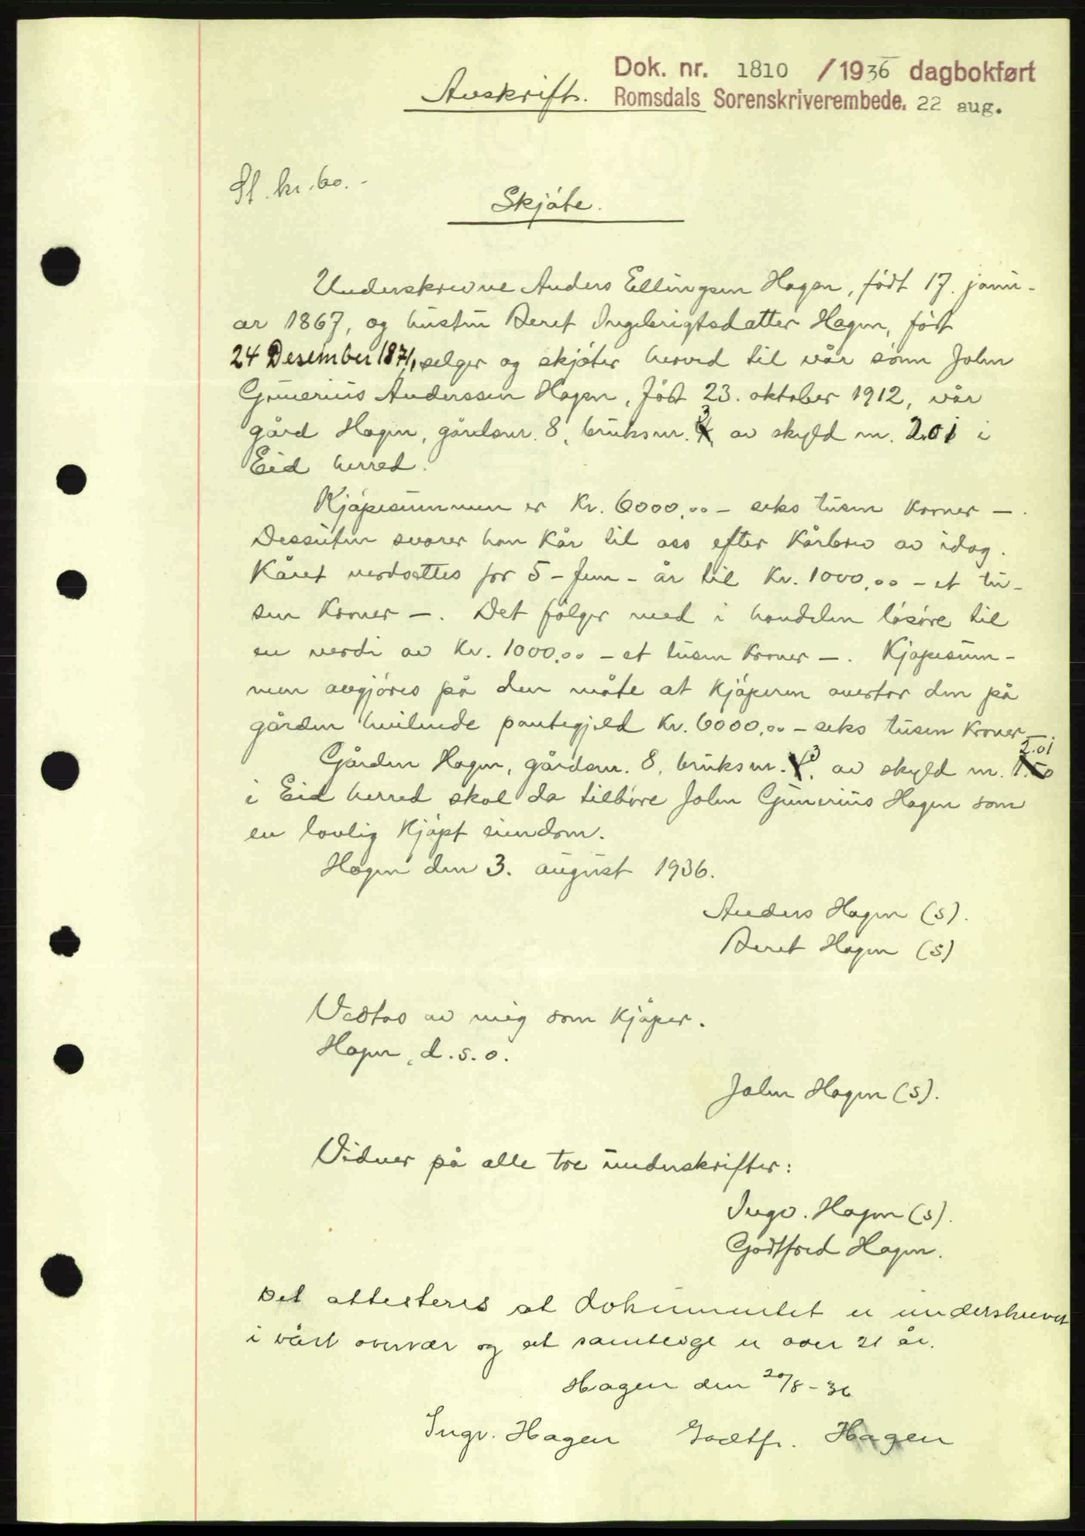 Dok. nr. 1810 / 1936 dagbokført
Avskrift. Romsdals Sorenskriverembede. 22 aug.
St. kr. 60.-
Skjøte.
Underskrevne Anders Ellingsen Hagen, født 17. janu-
ar 1867, og hustru Beret Ingebrigtsdatter Hagen, født
24 Desember 1871, selger og skjøter herved til vår sønn John
Gunerius Anderssen Hagen, født 23. oktober 1912, vår
gård Hagen, gårdsnr. 8, bruksnr. 3 av skyld m. 2.01 i
Eid herred.
Kjøpesummen er Kr. 6000,00 – seks tusen kroner –.
Dessuten svarer han kår til oss efter kårbrev av idag.
Kåret verdsettes for 5 – fem – år til Kr. 1000,00 – et tu-
sen kroner –. Det følger med i handelen løsøre til
en verdi av Kr. 1000,00 – et tusen kroner –. Kjøpesum-
men avgjøres på den måte at kjøperen overtar den på
gården hvilende pantegjeld Kr. 6000,00 – seks tusen kroner –.
Gården Hagen, gårdsnr. 8, bruksnr. 3, av skyld m. 2.01
i Eid herred skal da tilhøre John Gunerius Hagen som
en lovlig kjøpt eiendom.
Hagen den 3. august 1936.
Anders Hagen (s).
Beret Hagen (s)
Vedtas av mig som kjøper.
Hagen, d.s.o.
John Hagen (s).
Vidner på alle tre underskrifter:
Ingv. Hagen (s).
Godtfred Hagen.
Det attesteres at dokumentet er underskrevet
i vårt overvær og at samtlige er over 21 år.
Hagen den 20/8-36
Ingv. Hagen Godtfr. Hagen